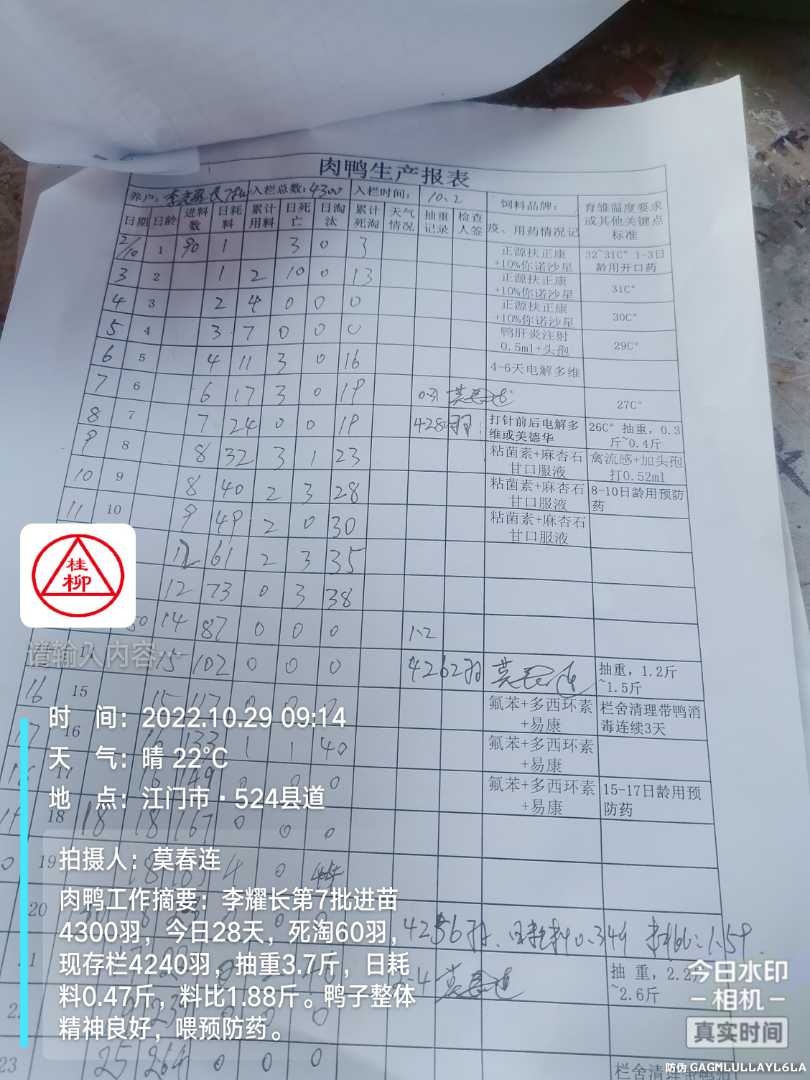 肉鸭生产报表
养户: 入栏总数:4300 入栏时间: 10.2 饲料品牌: 育雏温度要求或其他关键点标准
日期 日龄 进料数 日耗料 累计用料 日死亡 日淘汰 累计死淘 天气情况 抽重记录 检查人签 疫、用药情况记
2/10 1 90 1 3 0 3 正源扶正康+10%你诺沙星 32~31C° 1-3日龄用开口药
3 2 1 2 10 0 13 正源扶正康+10%你诺沙星 31C°
4 3 2 4 0 0 0 正源扶正康+10%你诺沙星 30C°
5 4 3 7 0 0 0 鸭肝炎注射0.5ml+头孢 29C°
6 5 4 11 3 0 16 4-6天电解多维
7 6 6 17 3 0 19 莫春连 27C°
8 7 7 24 0 0 19 428 羽 打针前后电解多维或美德华 26C° 抽重，0.3斤~0.4斤
9 8 8 32 3 1 23 粘菌素+麻杏石甘口服液 禽流感+加头孢打0.52ml
10 9 8 40 2 3 28 粘菌素+麻杏石甘口服液 8-10日龄用预防药
11 10 9 49 2 0 30 粘菌素+麻杏石甘口服液
12 61 2 3 35
12 73 0 3 38
14 87 0 0 0 1.2
15 102 0 0 0 4262羽 莫春连 抽重，1.2斤~1.5斤
16 15 15 117 0 0 0 氟苯+多西环素+易康 栏舍清理带鸭消毒连续3天
16 16 133 1 1 40 氟苯+多西环素+易康
149 0 0 氟苯+多西环素+易康 15-17日龄用预防药
18 18 18 167 0 0 0
19 18 4 0 44
20 4256羽. 日耗料0.349 料比:1.59.
莫春连 抽重，2.2斤~2.6斤
23 25 264 0 0 0 栏舍清理
桂柳
请输入内容
时 间：2022.10.29 09:14
天 气：晴 22℃
地 点：江门市·524县道
拍摄人：莫春连
肉鸭工作摘要：李耀长第7批进苗
4300羽，今日28天，死淘60羽，
现存栏4240羽，抽重3.7斤，日耗
料0.47斤，料比1.88斤。鸭子整体
精神良好，喂预防药。
今日水印
相机
真实时间
防伪 GAGMLULLAYL6LA